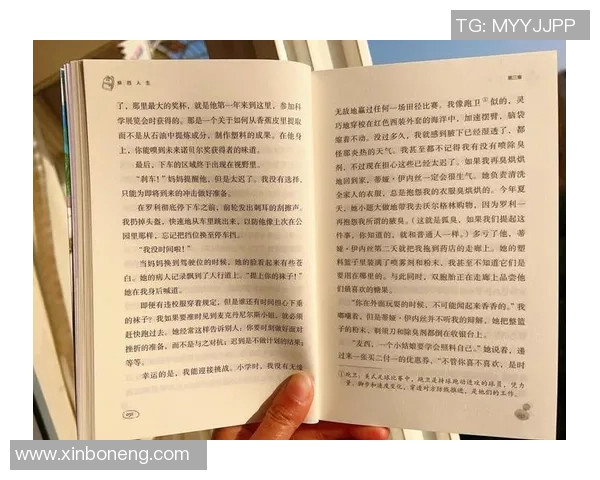 TG: MYYJJPP
麻烦人生
了，那里最大的奖杯，就是他第一年来到这里，参加科
学展览会时获得的。那是一个关于如何从香蕉皮里提取
而不是从石油中提炼成分，制作塑料的成果。在他身
上，你能嗅到未来诺贝尔奖获得者的味道。
最后，下车的区域终于出现在视野里。
“刹车！”妈妈提醒他，但是太迟了。我没有选择，
只能为即将到来的冲击做好准备。
在罗利彻底停下车之前，前轮发出刺耳的刮擦声，
我扔掉头盔，快速地从车里跳出来，以防他像上次在公
园里那样，忘记把挡位换至停车挡。
“我没时间啦！”
当妈妈换到驾驶位的时候，她的脸看起来有些苍
白。她的病人记录飘到了人行道上。“提上你的袜子！”她
在我身后喊道。
即便有连校服穿着规定，但是谁还有时间担心下垂
的袜子？我如果要准时见到麦克丹尼尔斯小姐，就必须
赶快跑过去。她经常这样告诉别人：你要时刻做好面对
挫折的准备，而不是与之对抗；迟到是不做计划的结果；
等等。
幸运的是，我能迎接挑战。小学时，我没有天线
第三章
无故地赢过任何一场田径比赛。我像跑卫①似的，灵
巧地穿梭在红色西装外套的海洋中，加速摆臂，脑袋
缩着不动。没过多久，我就感到腋下已经湿透了，都
怪那炎热的天气。我甚至都不记得我有没有喷除臭
剂，不过现在担心这些已经太迟了。如果我再臭烘烘
地回到家，蒂娅·伊内丝一定会很生气。她负责清洗
全家人的衣服，总是抱怨我的衣服臭烘烘的。今年夏
天，她小题大做地带我去沃尔格林购物，因为罗利一
再抱怨我所谓的腋臭。（这就是孤臭，如果我们提起这
件事，你知道的，就和普通人一样。）多亏了他，蒂
娅·伊内丝第二天就把我拖到药店的走廊上。她的塑
料篮子里装满了喷雾剂和粉末，我甚至不知道它们是
要用在哪里的。与此同时，双胞胎正在走廊上品尝他
们最喜欢的糖果。
“你在外面玩耍的时候，不可能闻起来香香的。”我
嘟囔着，但是蒂娅·伊内丝并不听我的辩解，她把整篮
子的粉末、剃须刀和除臭剂都倒在收银台上。
“麦西，一个小姑娘要学会照料自己。”她说着，递
过来一张买二付一的优惠券。“不管你喜不喜欢，是时
①跑卫：美式足球比赛中，跑卫是持球跑动进攻的球员，凭力
量、脚步和速度变化，穿透对方防线推进，是他们的工作。
www.xinboneng.com